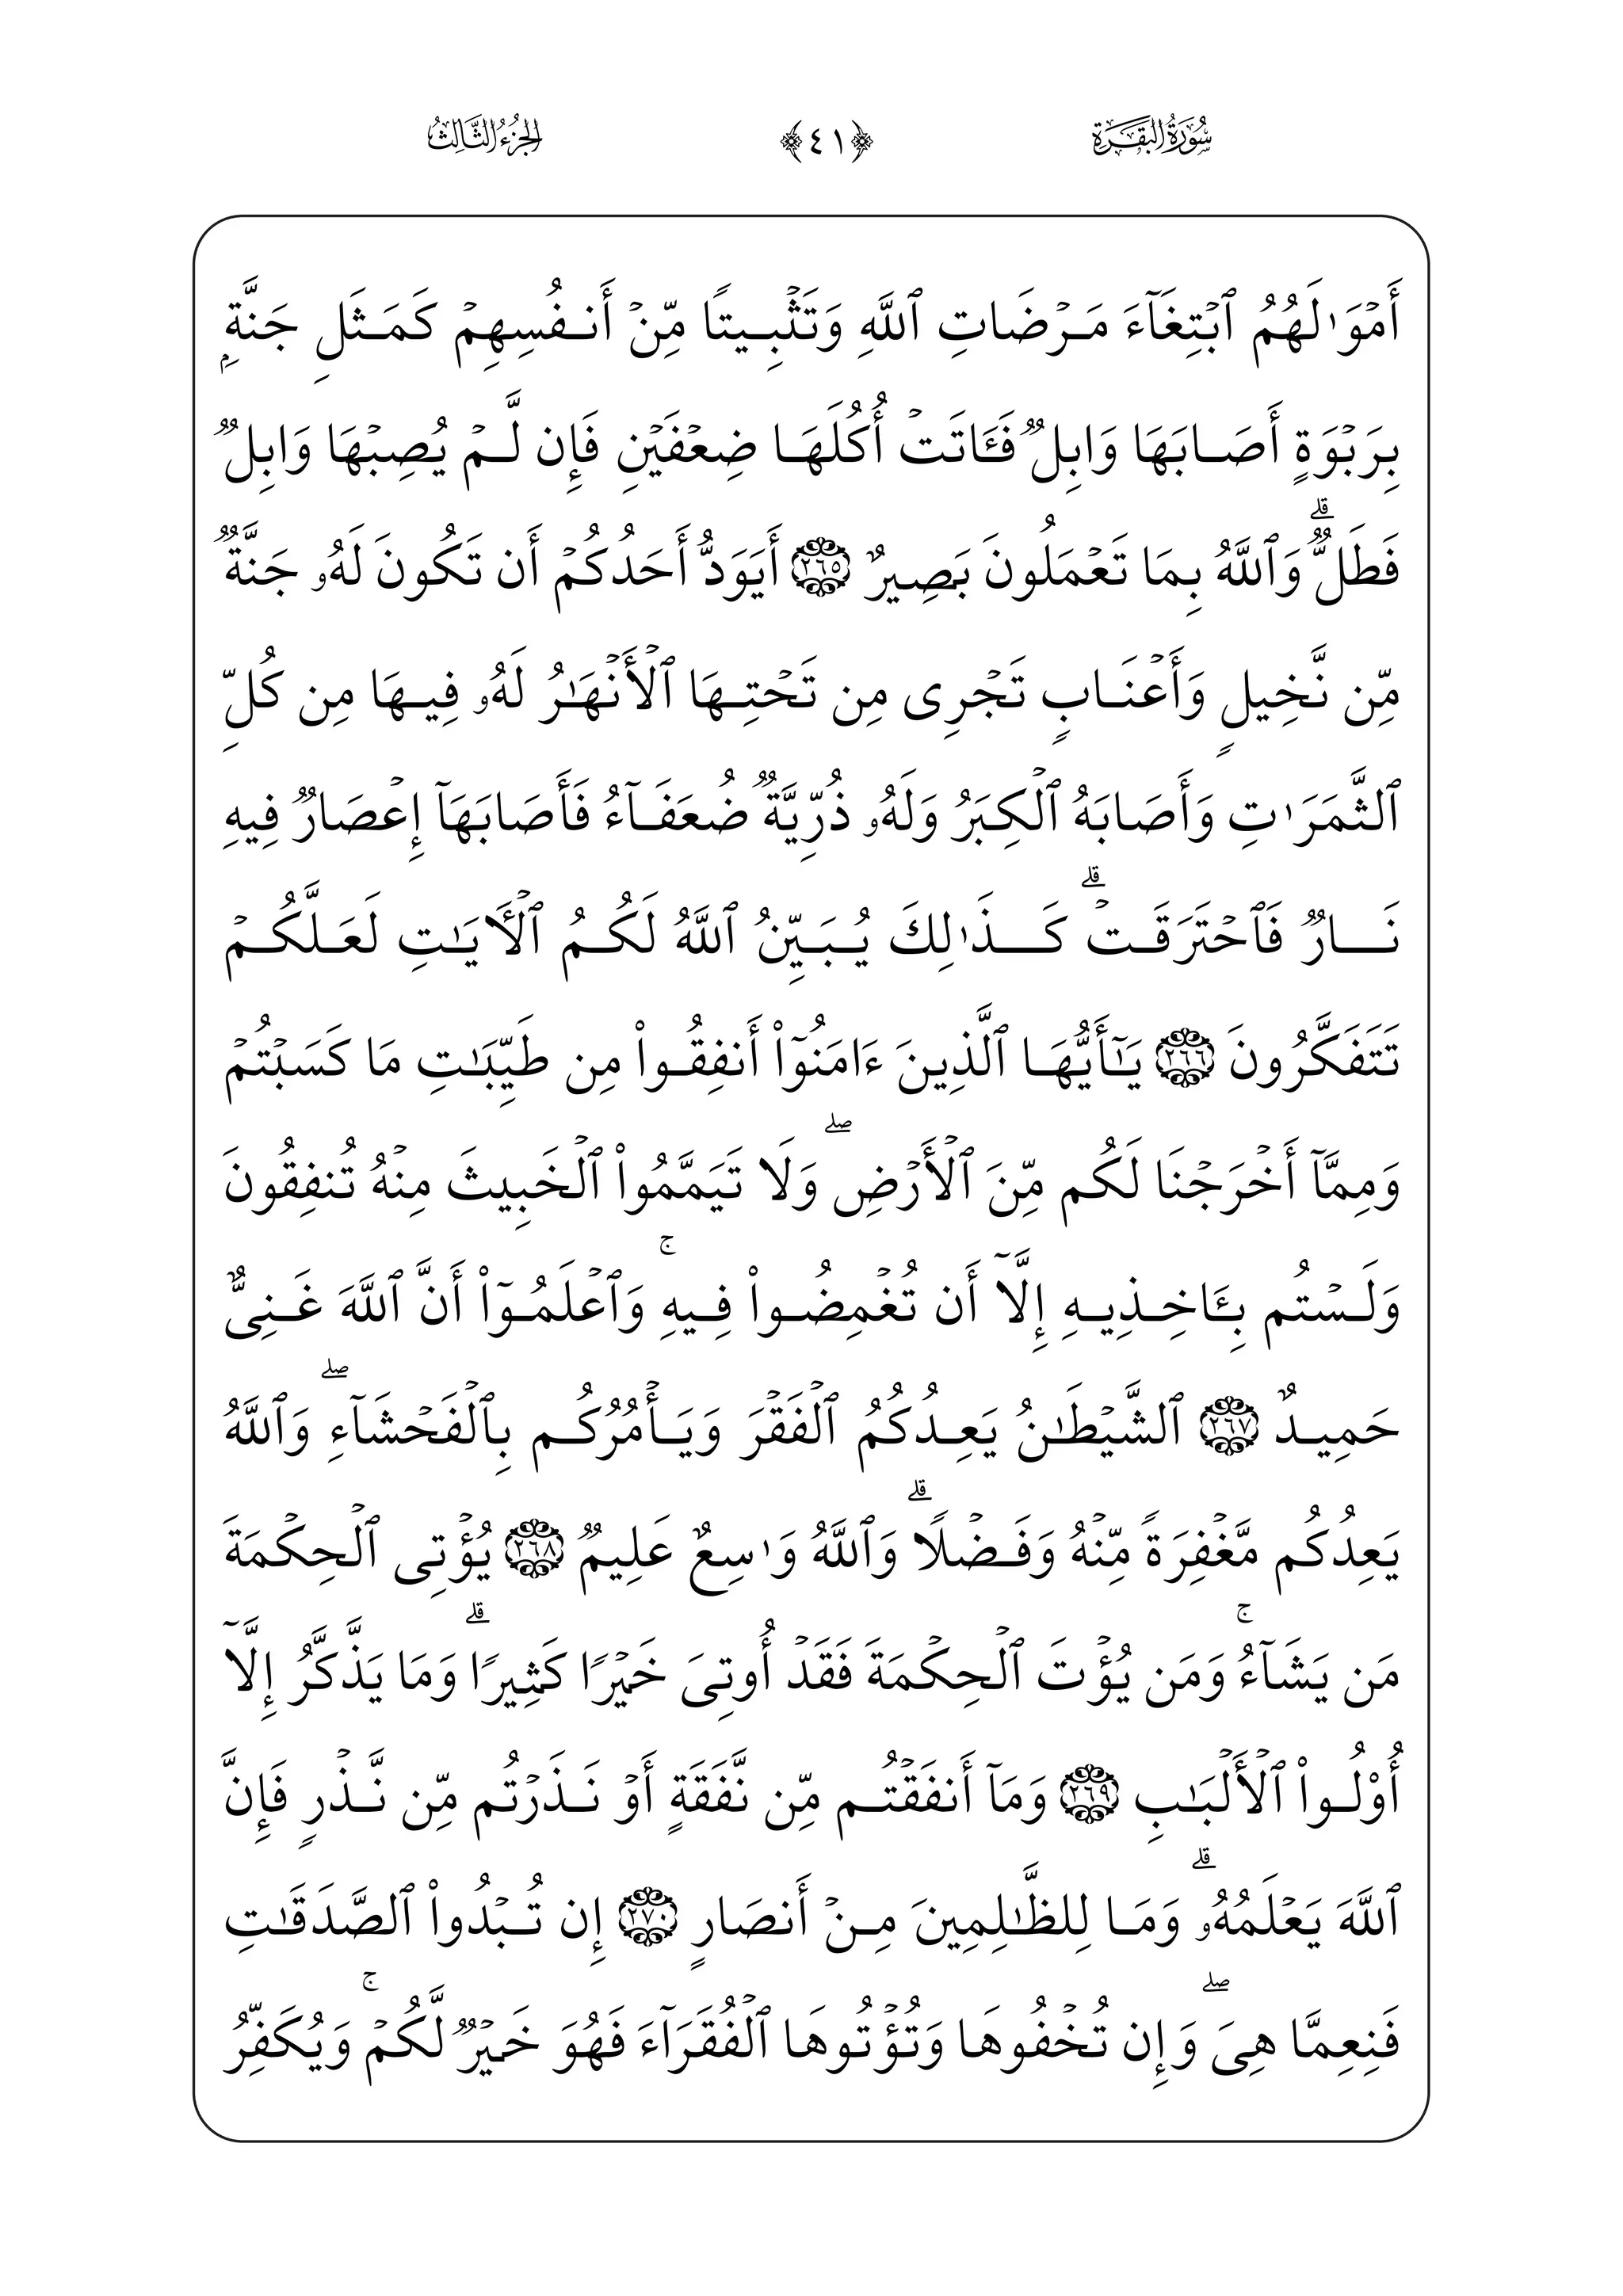 سُورَةُ البَقَرَةِ ﴿٤١﴾ الجُزْءُ الثَّالِثُ
أَمۡوَٰلَهُمُ ٱبۡتِغَآءَ مَرۡضَاتِ ٱللَّهِ وَتَثۡبِيتٗا مِّنۡ أَنفُسِهِمۡ كَمَثَلِ جَنَّةِۭ
بِرَبۡوَةٍ أَصَابَهَا وَابِلٞ فَـَٔاتَتۡ أُكُلَهَا ضِعۡفَيۡنِ فَإِن لَّمۡ يُصِبۡهَا وَابِلٞ
فَطَلّٞۗ وَٱللَّهُ بِمَا تَعۡمَلُونَ بَصِيرٌ ٢٦٥ أَيَوَدُّ أَحَدُكُمۡ أَن تَكُونَ لَهُۥ جَنَّةٞ
مِّن نَّخِيلٖ وَأَعۡنَابٖ تَجۡرِى مِن تَحۡتِهَا ٱلۡأَنۡهَٰرُ لَهُۥ فِيهَا مِن كُلِّ
ٱلثَّمَرَٰتِ وَأَصَابَهُ ٱلۡكِبَرُ وَلَهُۥ ذُرِّيَّةٞ ضُعَفَآءُ فَأَصَابَهَآ إِعۡصَارٞ فِيهِ
نَارٞ فَٱحۡتَرَقَتۡۗ كَذَٰلِكَ يُبَيِّنُ ٱللَّهُ لَكُمُ ٱلۡأٓيَٰتِ لَعَلَّكُمۡ
تَتَفَكَّرُونَ ٢٦٦ يَٰٓأَيُّهَا ٱلَّذِينَ ءَامَنُوٓاْ أَنفِقُواْ مِن طَيِّبَٰتِ مَا كَسَبۡتُمۡ
وَمِمَّآ أَخۡرَجۡنَا لَكُم مِّنَ ٱلۡأَرۡضِۖ وَلَا تَيَمَّمُواْ ٱلۡخَبِيثَ مِنۡهُ تُنفِقُونَ
وَلَسۡتُم بِـَٔاخِذِيهِ إِلَّآ أَن تُغۡمِضُواْ فِيهِۚ وَٱعۡلَمُوٓاْ أَنَّ ٱللَّهَ غَنِىٌّ
حَمِيدٌ ٢٦٧ ٱلشَّيۡطَٰنُ يَعِدُكُمُ ٱلۡفَقۡرَ وَيَأۡمُرُكُم بِٱلۡفَحۡشَآءِۖ وَٱللَّهُ
يَعِدُكُم مَّغۡفِرَةٗ مِّنۡهُ وَفَضۡلٗاۗ وَٱللَّهُ وَٰسِعٌ عَلِيمٞ ٢٦٨ يُؤۡتِى ٱلۡحِكۡمَةَ
مَن يَشَآءُۚ وَمَن يُؤۡتَ ٱلۡحِكۡمَةَ فَقَدۡ أُوتِىَ خَيۡرٗا كَثِيرٗاۗ وَمَا يَذَّكَّرُ إِلَّآ
أُوْلُواْ ٱلۡأَلۡبَٰبِ ٢٦٩ وَمَآ أَنفَقۡتُم مِّن نَّفَقَةٍ أَوۡ نَذَرۡتُم مِّن نَّذۡرٖ فَإِنَّ
ٱللَّهَ يَعۡلَمُهُۥۗ وَمَا لِلظَّٰلِمِينَ مِنۡ أَنصَارٍ ٢٧٠ إِن تُبۡدُواْ ٱلصَّدَقَٰتِ
فَنِعِمَّا هِىَۖ وَإِن تُخۡفُوهَا وَتُؤۡتُوهَا ٱلۡفُقَرَآءَ فَهُوَ خَيۡرٞ لَّكُمۡۚ وَيُكَفِّرُ